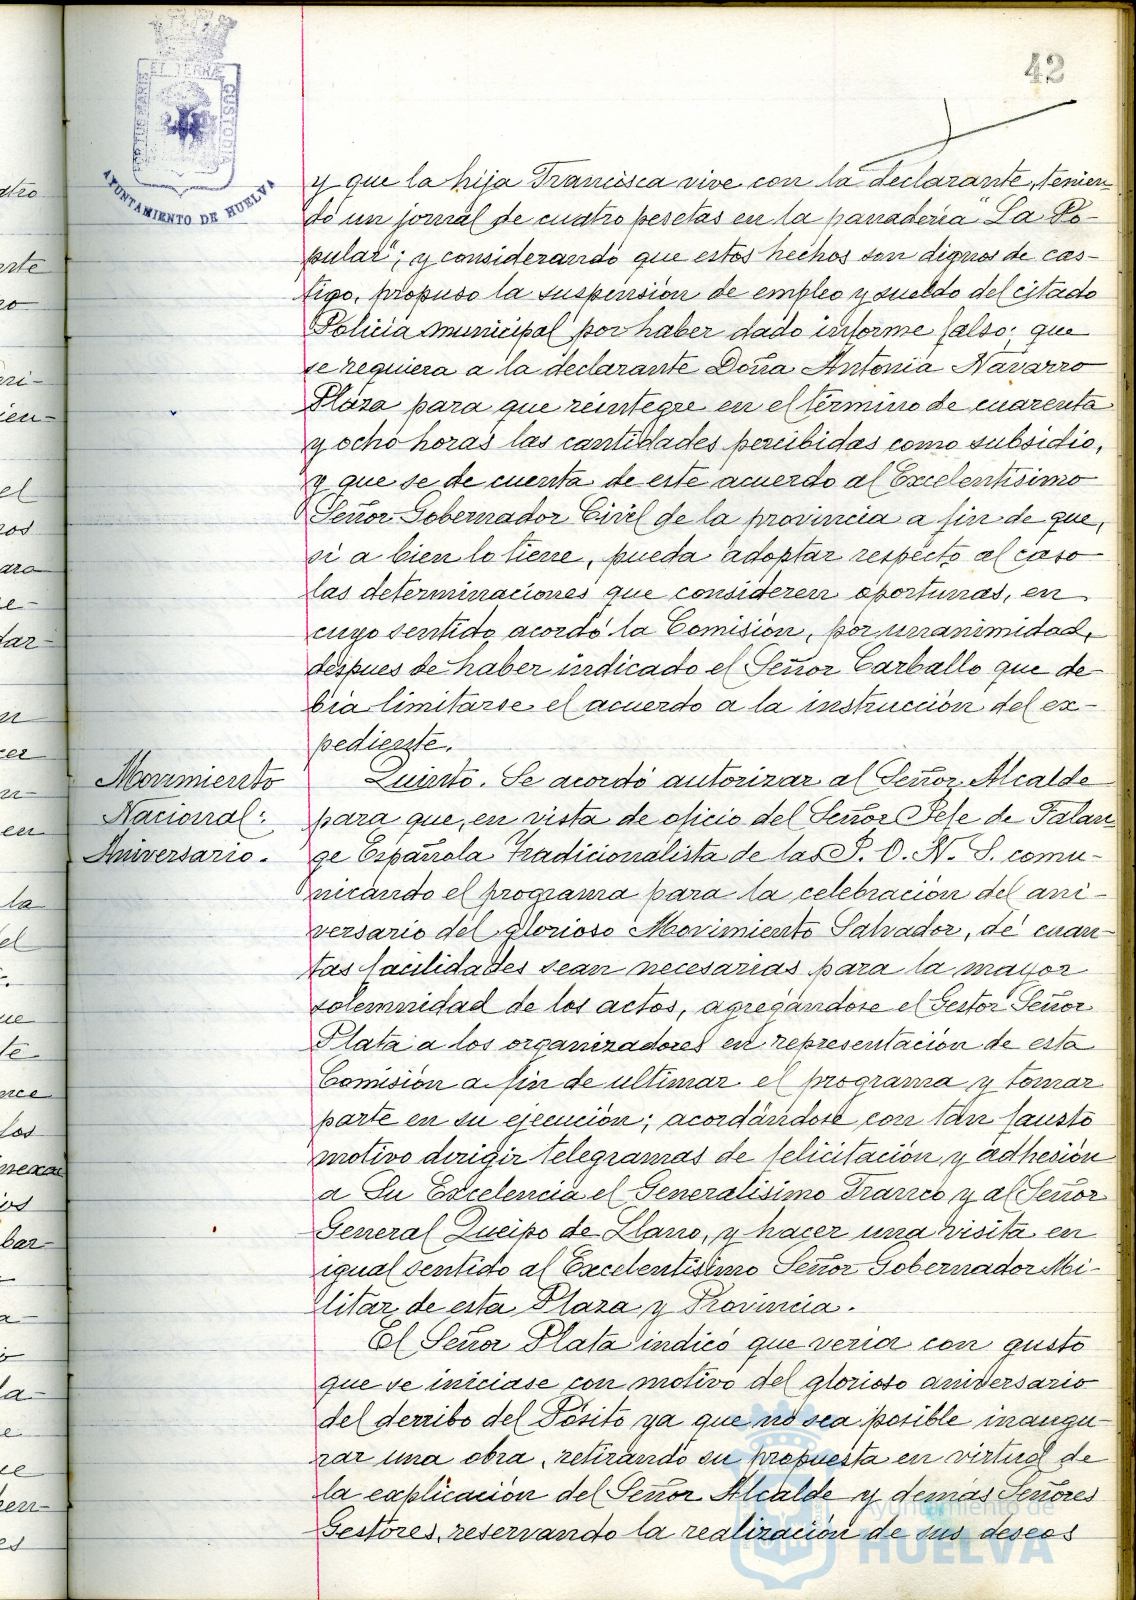 42
PORTUS MARIS ET TERRÆ CUSTODIA
AYUNTAMIENTO DE HUELVA
y que la hija Francisca vive con la declarante, tenien-
do un jornal de cuatro pesetas en la panaderia "La Po-
pular"; y considerando que estos hechos son dignos de cas-
tigo, propuso la suspensión de empleo y sueldo del citado
Policia municipal por haber dado informe falso; que
se requiera a la declarante Doña Antonia Navarro
Plaza para que reintegre en el término de cuarenta
y ocho horas las cantidades percibidas como subsidio,
y que se de cuenta de este acuerdo al Excelentisimo
Señor Gobernador Civil de la provincia a fin de que,
si a bien lo tiene, pueda adoptar respecto al caso
las determinaciones que consideren oportunas, en
cuyo sentido acordó la Comisión, por unanimidad,
despues de haber indicado el Señor Carballo que de-
bia limitarse el acuerdo a la instrucción del ex-
pediente.
Movimiento
Nacional:
Aniversario.
Quinto. Se acordó autorizar al Señor Alcalde
para que, en vista de oficio del Señor Jefe de Falan-
ge Española Tradicionalista de las J. O. N. S. comu-
nicando el programa para la celebración del ani-
versario del glorioso Movimiento Salvador, dé cuan-
tas facilidades sean necesarias para la mayor
solemnidad de los actos, agregándose el Gestor Señor
Plata a los organizadores en representación de esta
Comisión a fin de ultimar el programa y tomar
parte en su ejecución; acordándose con tan fausto
motivo dirigir telegramas de felicitación y adhesión
a Su Excelencia el Generalisimo Franco y al Señor
General Queipo de Llano, y hacer una visita en
igual sentido al Excelentisimo Señor Gobernador Mi-
litar de esta Plaza y Provincia.
El Señor Plata indicó que veria con gusto
que se iniciase con motivo del glorioso aniversario
del derribo del Pósito ya que no sea posible inaugu-
rar una obra, retirando su propuesta en virtud de
la explicación del Señor Alcalde y demás Señores
Gestores, reservando la realización de sus deseos
Ayuntamiento de
HUELVA